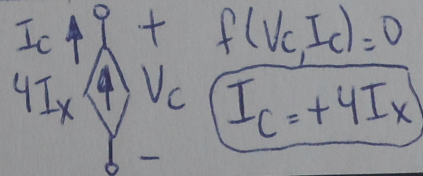 Ic + f(Vc, Ic) = 0
4Ix Vc Ic = +4Ix
-